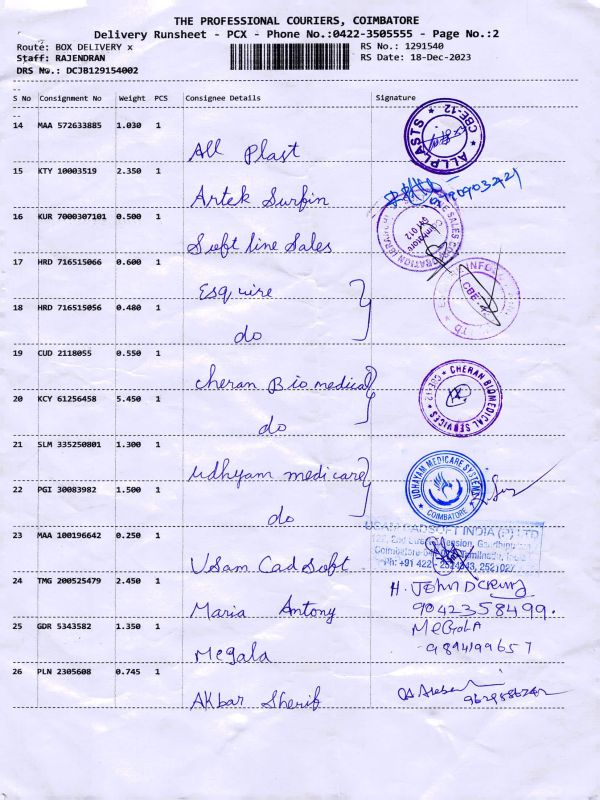 THE PROFESSIONAL COURIERS, COIMBATORE
Delivery Runsheet - PCX - Phone No.:0422-3505555 - Page No.:2
Route: BOX DELIVERY x
RS No.: 1291540
Staff: RAJENDRAN
RS Date: 18-Dec-2023
DRS No.: DCJB129154002
S No Consignment No Weight PCS Consignee Details Signature
14 MAA 572633885 1.030 1 All Plast
ALLPLASTS * CBE-12 *
15 KTY 10003519 2.350 1 Artek Surfin
16 KUR 7000307101 0.500 1 Soft line Sales
Coimbatore 641 012
17 HRD 716515066 0.600 1 Esquire
CBE
18 HRD 716515056 0.480 1 do
19 CUD 2118055 0.550 1 cheran Biomedical
* CHERAN BIOMEDICAL SERVICES * CBE-12
20 KCY 61256458 5.450 1 do
21 SLM 335250801 1.300 1 udhyam medicare
UDHAYAM MEDICARE SYSTEMS
COIMBATORE
22 PGI 30083982 1.500 1 do
USAM CADSOFT INDIA (P) LTD
23 MAA 100196642 0.250 1 Usam Cad Soft
Ph: +91 422 -
24 TMG 200525479 2.450 1 Maria Antony
H. JOHN DCRUZ
9042358499.
25 GDR 5343582 1.350 1 Megala
MEGALA
- 9894199657
26 PLN 2305608 0.745 1 Akbar Sherif